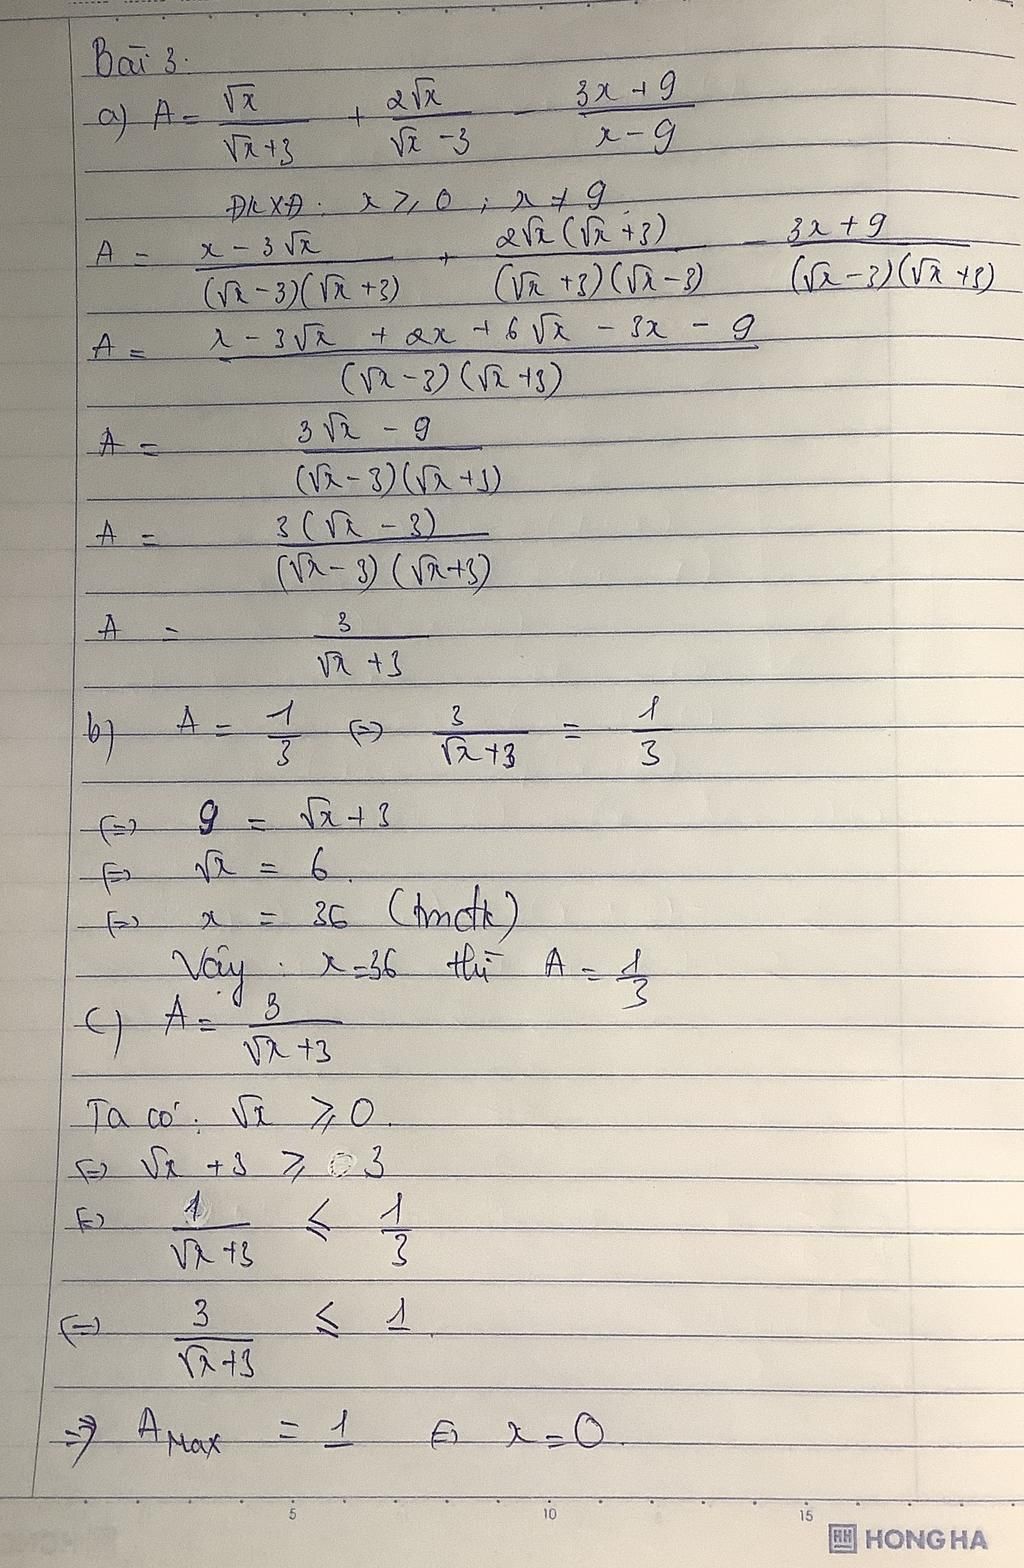 Bài 3.
a) A = √x/(√x+3) + 2√x/(√x-3) - (3x+9)/(x-9)
ĐKXĐ: x ≥ 0 ; x ≠ 9
A = (x-3√x)/((√x-3)(√x+3)) + 2√x(√x+3)/((√x+3)(√x-3)) - (3x+9)/((√x-3)(√x+3))
A = (x-3√x+2x+6√x-3x-9)/((√x-3)(√x+3))
A = (3√x-9)/((√x-3)(√x+3))
A = 3(√x-3)/((√x-3)(√x+3))
A = 3/(√x+3)
b) A = 1/3 (=) 3/(√x+3) = 1/3
(=) 9 = √x+3
(=) √x = 6.
(=) x = 36 (tmđk)
Vậy : x=36 thì A = 1/3
c) A = 3/(√x+3)
Ta có: √x ≥ 0.
(=) √x + 3 ≥ 3
(=) 1/(√x+3) ≤ 1/3
(=) 3/(√x+3) ≤ 1.
=> A Max = 1 (=) x=0.
5 10 15
HH HONG HA